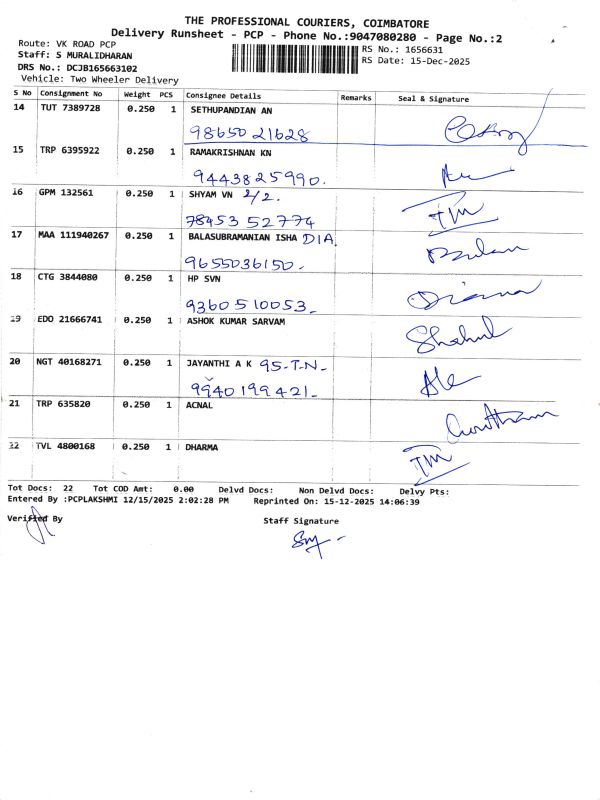 THE PROFESSIONAL COURIERS, COIMBATORE
Delivery Runsheet - PCP - Phone No.:9047080280 - Page No.:2
Route: VK ROAD PCP
RS No.: 1656631
Staff: S MURALIDHARAN
RS Date: 15-Dec-2025
DRS No.: DCJB165663102
Vehicle: Two Wheeler Delivery
S No Consignment No Weight PCS Consignee Details Remarks Seal & Signature
14 TUT 7389728 0.250 1 SETHUPANDIAN AN
98650 21628
15 TRP 6395922 0.250 1 RAMAKRISHNAN KN
9443825990.
16 GPM 132561 0.250 1 SHYAM VN 2/2.
78453 52774 TM
17 MAA 111940267 0.250 1 BALASUBRAMANIAN ISHA DIA.
9655036150.
18 CTG 3844080 0.250 1 HP SVN
9360510053. Diana
19 EDO 21666741 0.250 1 ASHOK KUMAR SARVAM
Shahul
20 NGT 40168271 0.250 1 JAYANTHI A K 95-T-N-
9940199421.
21 TRP 635820 0.250 1 ACNAL
22 TVL 4800168 0.250 1 DHARMA TM
Tot Docs: 22 Tot COD Amt: 0.00 Delvd Docs: Non Delvd Docs: Delvy Pts:
Entered By :PCPLAKSHMI 12/15/2025 2:02:28 PM Reprinted On: 15-12-2025 14:06:39
Verified By Staff Signature